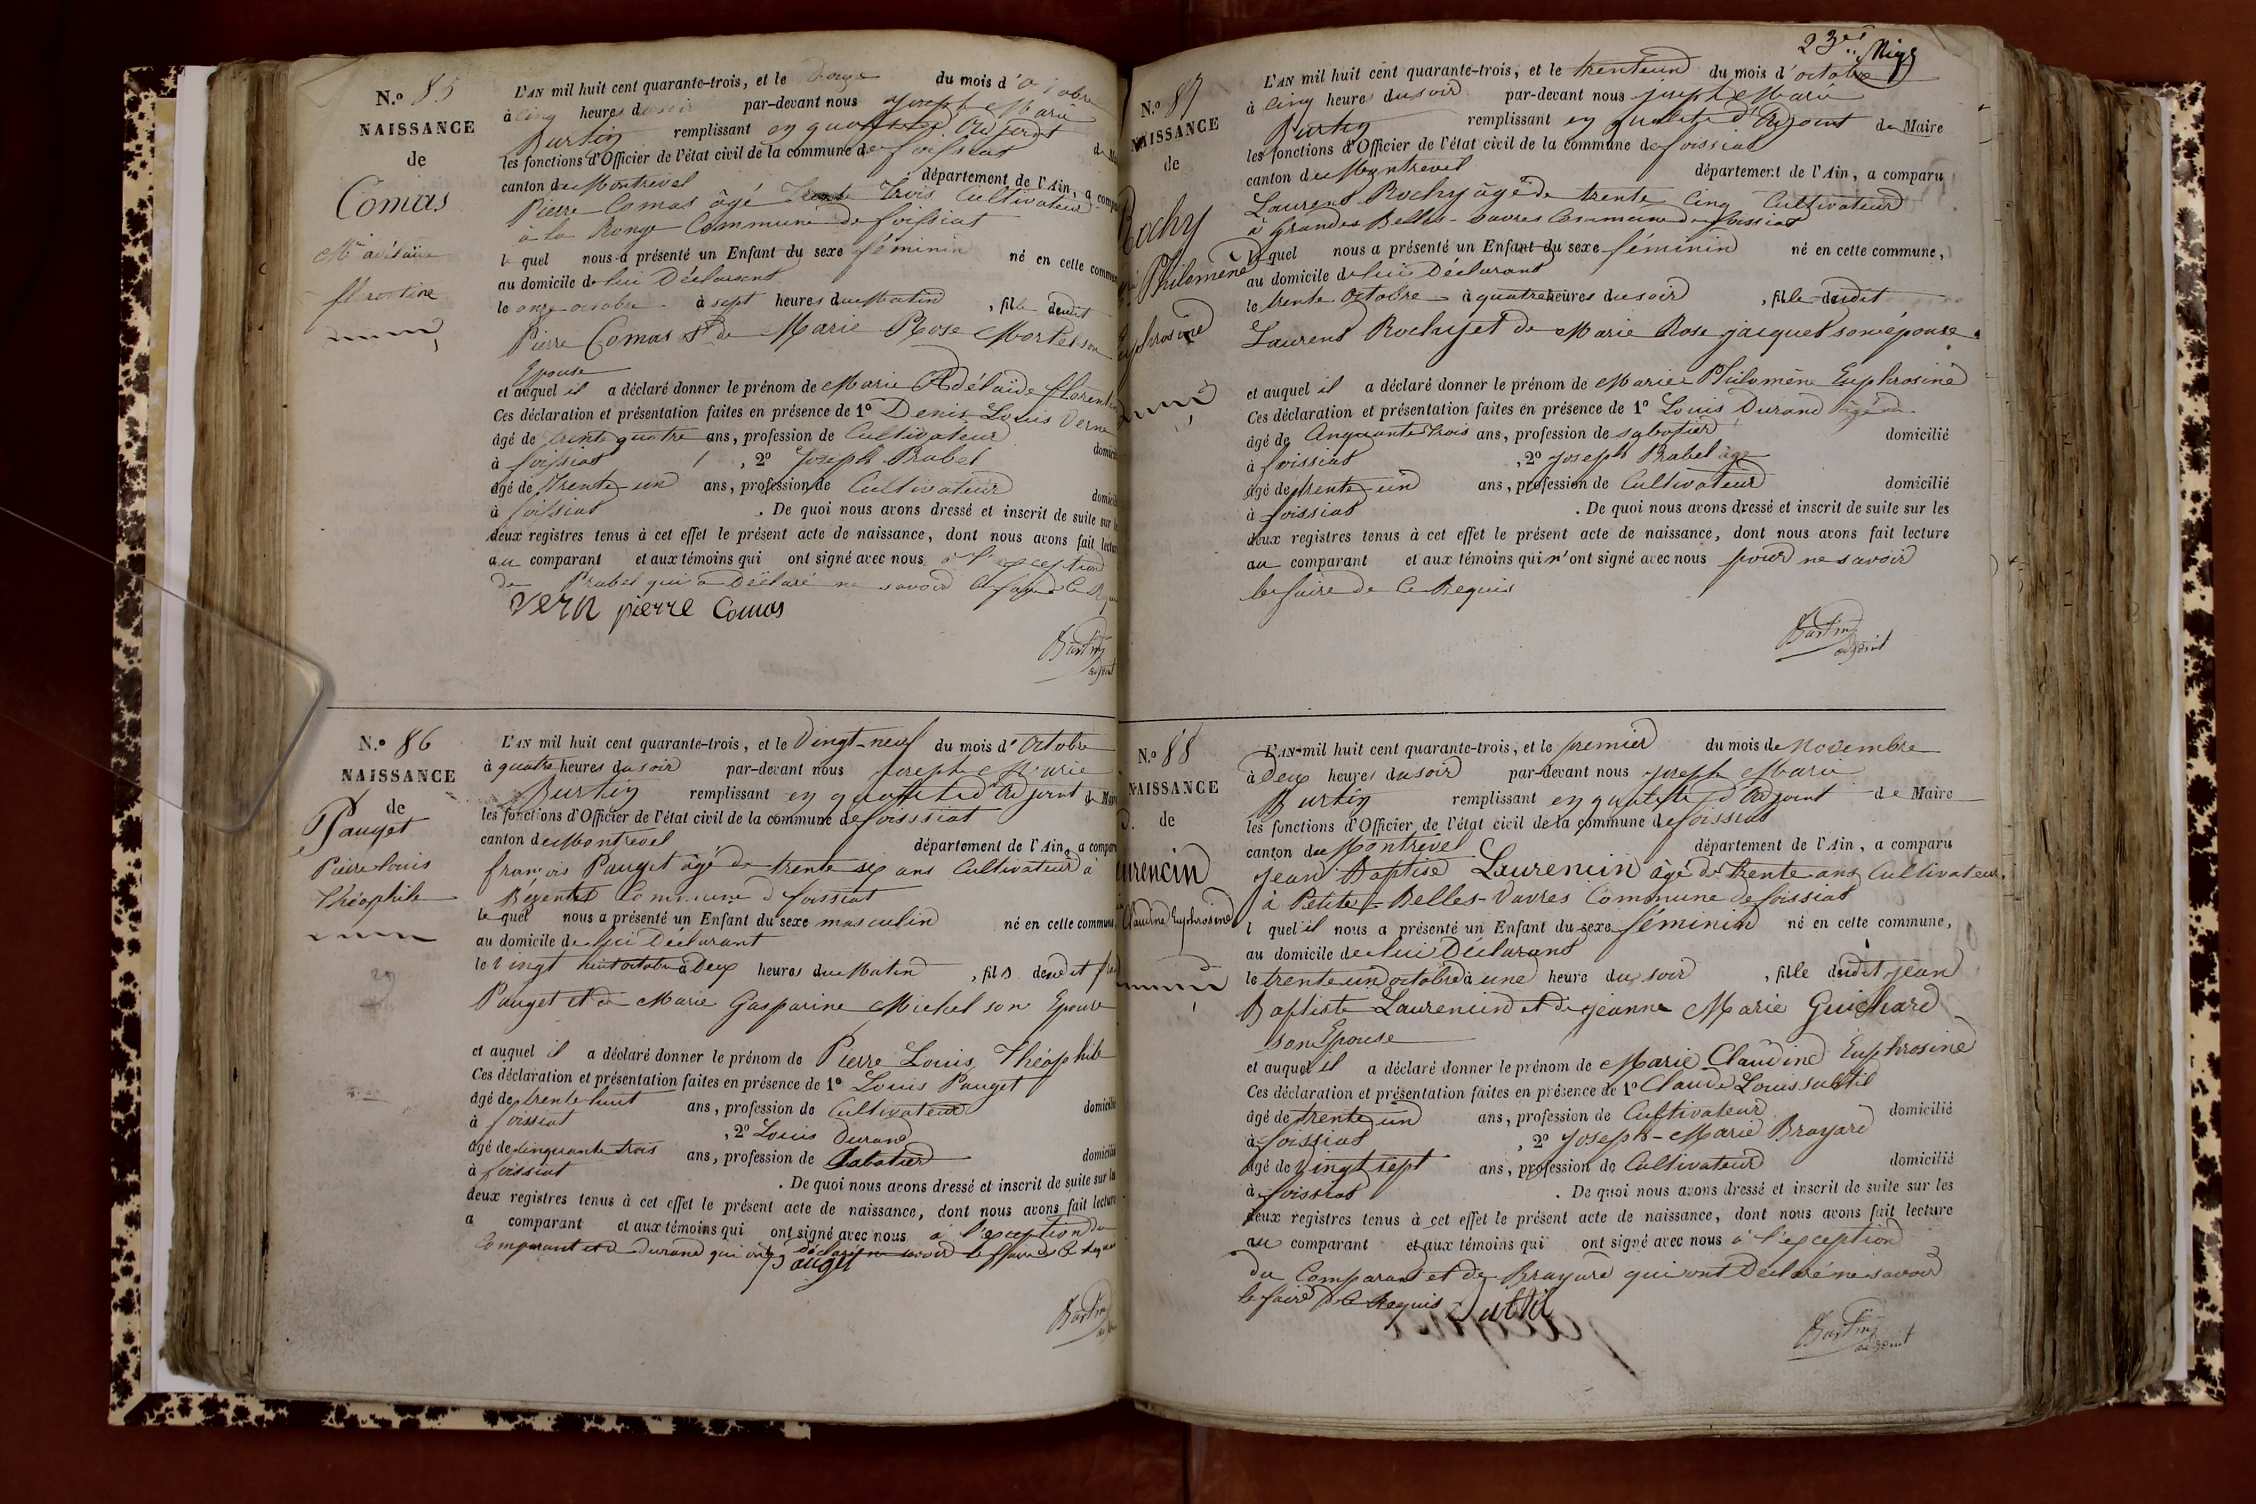 N.o 85
NAISSANCE
de
Comas
Mie adélaïde
florentine
L'AN mil huit cent quarante-trois, et le Douze du mois d'octobre
à cinq heures du soir par-devant nous Joseph Marie
Burtin remplissant en qualité d'Adjoint de
les fonctions d'Officier de l'état civil de la commune de foissiat
canton de Montrevel département de l'Ain, a comparu
Pierre Comas âgé trente trois Cultivateur
à la Ronge Commune de foissiat
lequel nous a présenté un Enfant du sexe féminin né en cette commune
au domicile de lui Déclarant
le onze octobre à sept heures du Matin, fille dudit
Pierre Comas & de Marie Rose Mortel son
Epouse
et auquel il a déclaré donner le prénom de Marie Adélaïde florentine
Ces déclaration et présentation faites en présence de 1o Denis Louis Verne
âgé de trente quatre ans, profession de Cultivateur domicilié
à foissiat, 2o Joseph Brabel
âgé de trente-un ans, profession de Cultivateur domicilié
à foissiat. De quoi nous avons dressé et inscrit de suite sur les
deux registres tenus à cet effet le présent acte de naissance, dont nous avons fait lecture
au comparant et aux témoins qui ont signé avec nous à l'exception
de Brabel qui a Déclaré ne savoir le faire de ce Requis
vern pierre Comas
Burtin
adjoint
N.o 86
NAISSANCE
de
Pauget
Pierre Louis
théophile
L'AN mil huit cent quarante-trois, et le Vingt-neuf du mois d'Octobre
à quatre heures du soir par-devant nous Joseph Marie
Burtin remplissant en qualité d'Adjoint de Maire
les fonctions d'Officier de l'état civil de la commune de foissiat
canton de Montrevel département de l'Ain, a comparu
françois Pauget âgé de trente six ans Cultivateur à
Commune de foissiat
lequel nous a présenté un Enfant du sexe masculin né en cette commune
au domicile de lui Déclarant
le Vingt huit octobre à Deux heures du Matin, fils dudit
Pauget et de Marie Gasparine Michel son Epouse
et auquel il a déclaré donner le prénom de Pierre Louis Théophile
Ces déclaration et présentation faites en présence de 1o Louis Pauget
âgé de trente huit ans, profession de Cultivateur domicilié
à foissiat, 2o Louis Durand
âgé de cinquante trois ans, profession de Sabotier domicilié
à foissiat. De quoi nous avons dressé et inscrit de suite sur les
deux registres tenus à cet effet le présent acte de naissance, dont nous avons fait lecture
a comparant et aux témoins qui ont signé avec nous à l'exception du
Comparant et de Durand qui ont déclaré ne savoir le faire de ce Requis
Pauget
Burtin
23es
N.o 87
NAISSANCE
de
Rochy
Philomène
Euphrosine
L'AN mil huit cent quarante-trois, et le trente un du mois d'octobre
à cinq heures du soir par-devant nous joseph Marie
Burtin remplissant en qualité d'Adjoint de Maire
les fonctions d'Officier de l'état civil de la commune de foissiat
canton de Montrevel département de l'Ain, a comparu
Laurent Rochy âgé de trente Cinq Cultivateur
à Grandes Belles-vavres Commune de foissiat
lequel nous a présenté un Enfant du sexe féminin né en cette commune,
au domicile de lui Déclarant
le trente Octobre à quatre heures du soir, fille dudit
Laurent Rochy et de Marie Rose jacquet son épouse
et auquel il a déclaré donner le prénom de Marie Philomène Euphrosine
Ces déclaration et présentation faites en présence de 1o Louis Durand âgé de
âgé de Cinquante trois ans, profession de sabotier domicilié
à foissiat, 2o Joseph Brabel âgé
âgé de trente-un ans, profession de Cultivateur domicilié
à foissiat. De quoi nous avons dressé et inscrit de suite sur les
deux registres tenus à cet effet le présent acte de naissance, dont nous avons fait lecture
au comparant et aux témoins qui n'ont signé avec nous pour ne savoir
le faire de ce Requis
Burtin
adjoint
N.o 88
NAISSANCE
de
urencin
Claudine Euphrosine
L'AN mil huit cent quarante-trois, et le premier du mois de Novembre
à Deux heures du soir par-devant nous joseph Marie
Burtin remplissant en qualité d'Adjoint de Maire
les fonctions d'Officier de l'état civil de la commune de foissiat
canton de Montrevel département de l'Ain, a comparu
Jean Baptise Laurencin âgé de trente ans Cultivateur
à Petite-Belles-Vavres Commune de foissiat
lequel il nous a présenté un Enfant du sexe féminin né en cette commune,
au domicile de lui Déclarant
le trente un octobre à une heure du soir, fille dudit jean
Baptiste Laurencin et de jeanne Marie Guichard
son Epouse
et auquel il a déclaré donner le prénom de Marie Claudine Euphrosine
Ces déclaration et présentation faites en présence de 1o Claude Louis subtil
âgé de trente un ans, profession de Cultivateur domicilié
à foissiat, 2o Joseph-Marie Brayard
âgé de Vingt sept ans, profession de Cultivateur domicilié
à foissiat. De quoi nous avons dressé et inscrit de suite sur les
deux registres tenus à cet effet le présent acte de naissance, dont nous avons fait lecture
au comparant et aux témoins qui ont signé avec nous à l'exception
du Comparant et de Brayard qui ont Déclaré ne savoir
le faire de ce Requis Subtil
Burtin
adjoint